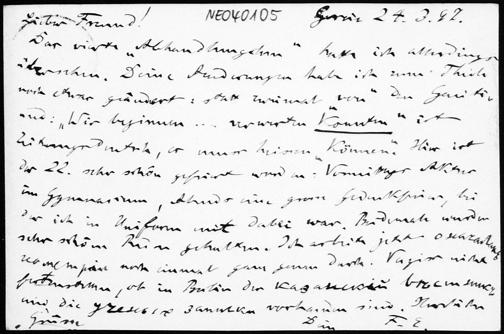 Lieber Freund! NE040105 24.3.42.
Das vierte „Abhandlungsehen“ hatte ich allerdings
übersehen. Deine Änderungen habe ich zum Theile
noch etwas geändert: statt zweimal „von“ den Genitiv
und: „Wir beginnen ... erwarten Konnten“ ist
Zeitungsdeutsch, es muss heissen „Können“. Hier ist
der 22. sehr schön gefeiert worden. Vormittags Aktus
im Gymnasium, Abends eine grosse Gedenkfeier, bei
der ich in Uniform mit dabei war. Beidemale wurden
sehr schöne Reden gehalten. Ich arbeite jetzt
noch einmal ganz genau durch. Vergiss nicht
, ob in Berlin der казанский вестник
und die ученыя записки vorhanden sind. Herzliche
Grüsse Dein F. E.